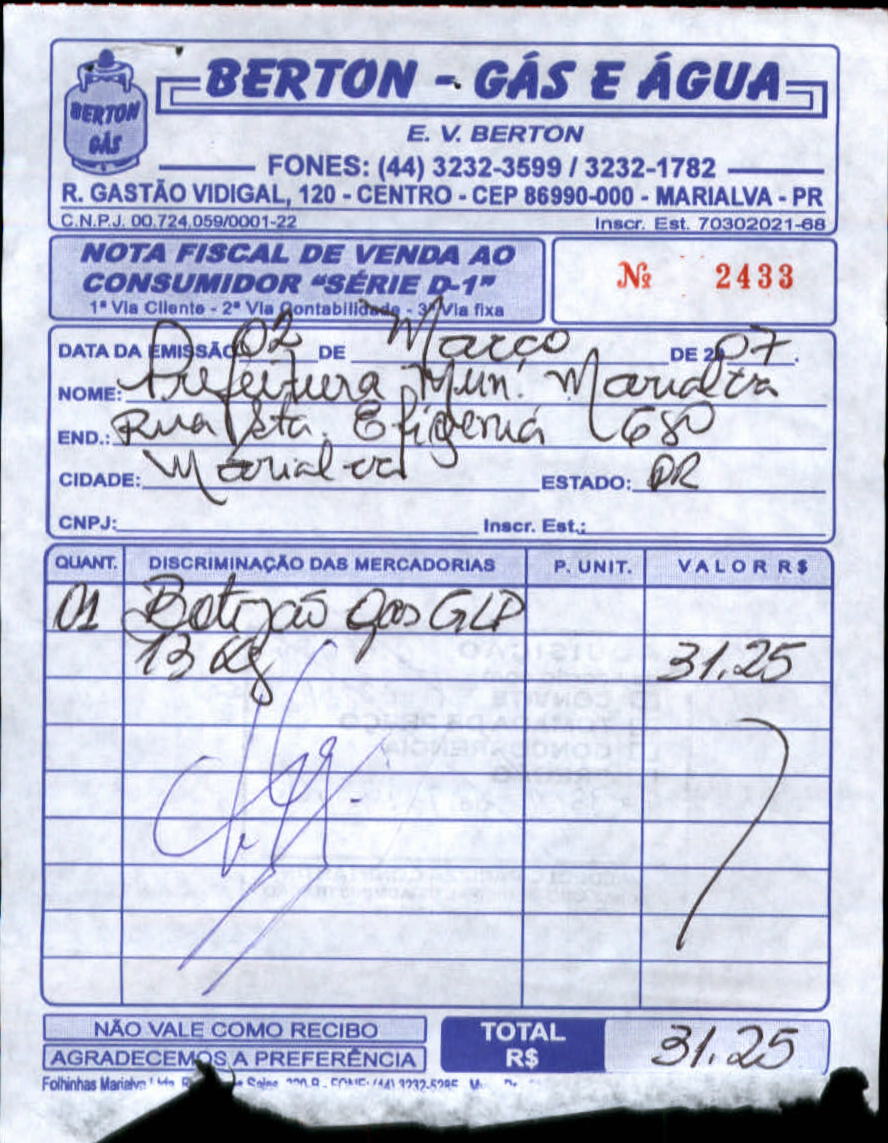 BERTON GÁS
BERTON - GÁS E ÁGUA
E. V. BERTON
FONES: (44) 3232-3599 / 3232-1782
R. GASTÃO VIDIGAL, 120 - CENTRO - CEP 86990-000 - MARIALVA - PR
C.N.P.J. 00.724.059/0001-22 Inscr. Est. 70302021-68
NOTA FISCAL DE VENDA AO
CONSUMIDOR "SÉRIE D-1"
1ª Via Cliente - 2ª Via Contabilidade - 3ª Via fixa
Nº 2433
DATA DA EMISSÃO 02 DE Março DE 207.
NOME: Prefeitura Mun. Marialva
END.: Rua Sta. Efigenia 680
CIDADE: Marialva ESTADO: PR
CNPJ: Inscr. Est.:
QUANT. DISCRIMINAÇÃO DAS MERCADORIAS P. UNIT. VALOR R$
01 Botijão gas GLP
13 kg 31.25
NÃO VALE COMO RECIBO
AGRADECEMOS A PREFERÊNCIA
TOTAL R$ 31.25
Folhinhas Marialva Ltda.